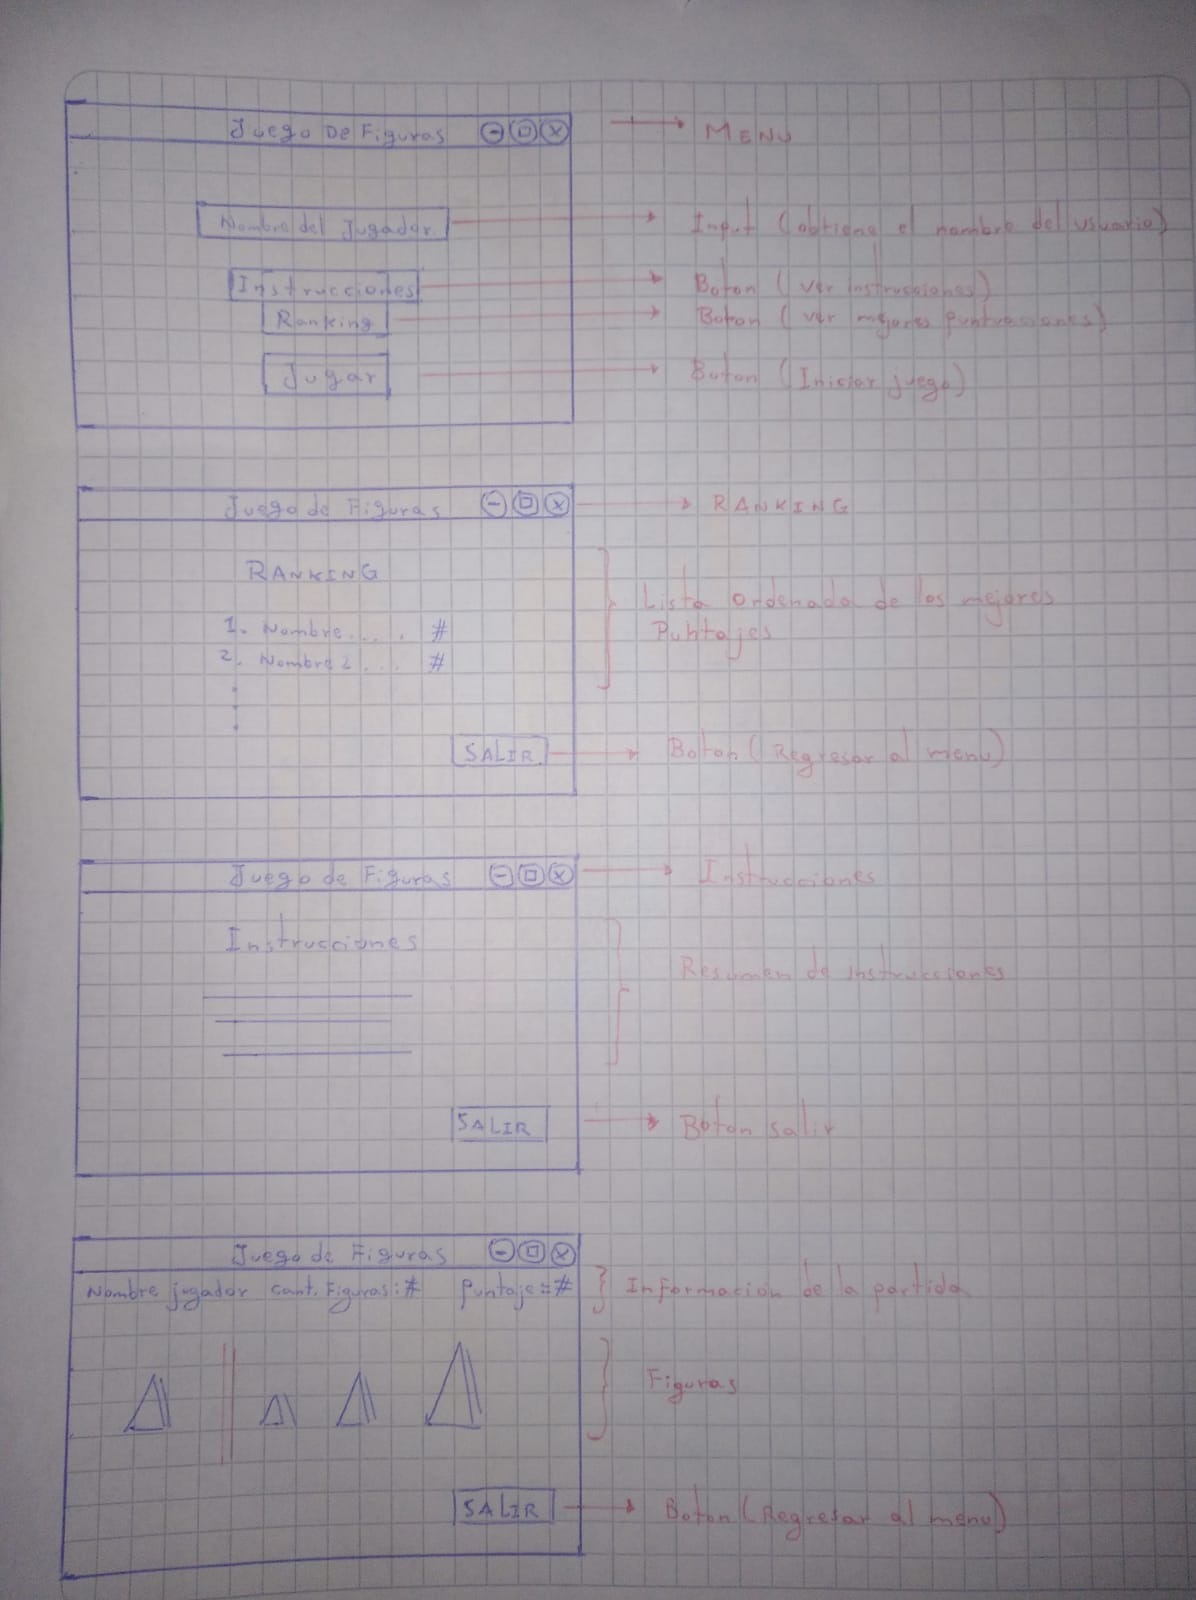 Juego De Figuras
MENU
Nombre del Jugador
Input (obtiene el nombre del usuario)
Instrucciones
Boton (ver instrucciones)
Ranking
Boton (ver mejores puntuaciones)
Jugar
Boton (Iniciar juego)
Juego de Figuras
RANKING
RANKING
Lista Ordenada de los mejores
Puntajes
1. Nombre.... #
2. Nombre 2... #
SALIR
Boton (Regresar al menu)
Juego de Figuras
Instrucciones
Instrucciones
Resumen de instrucciones
SALIR
Boton salir
Juego de Figuras
Nombre jugador cant. Figuras: # Puntaje = #
Informacion de la partida
Figuras
SALIR
Boton (Regresar al menu)